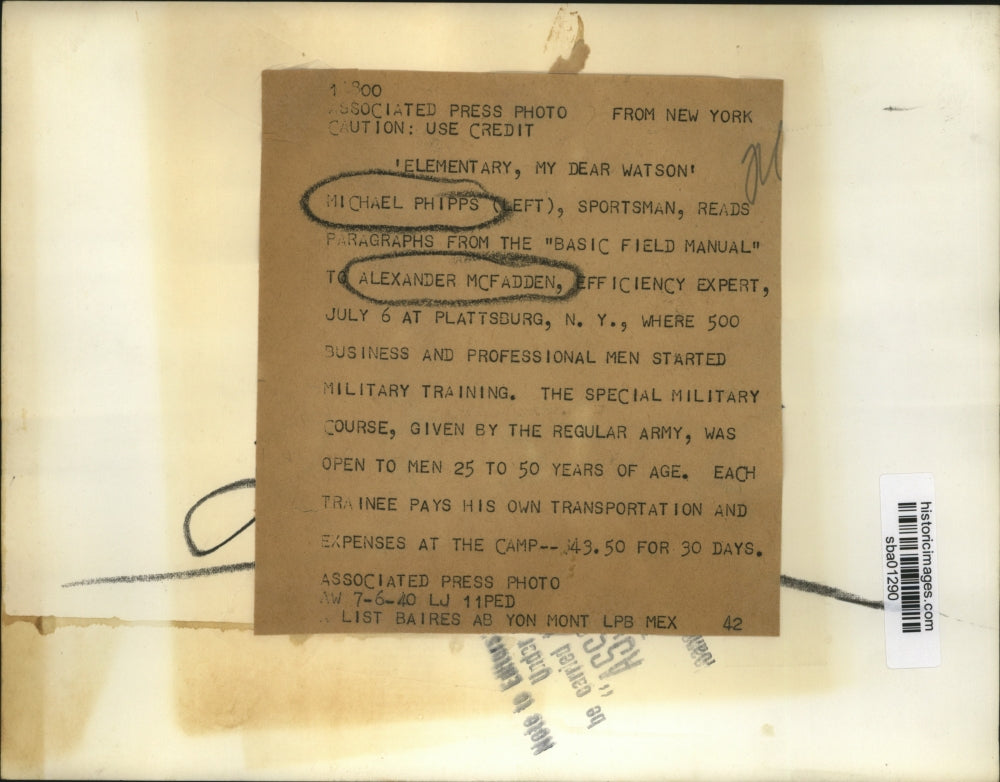 ASSOCIATED PRESS PHOTO FROM NEW YORK
CAUTION: USE CREDIT
'ELEMENTARY, MY DEAR WATSON'
MICHAEL PHIPPS (LEFT), SPORTSMAN, READS
PARAGRAPHS FROM THE "BASIC FIELD MANUAL"
TO ALEXANDER MCFADDEN, EFFICIENCY EXPERT,
JULY 6 AT PLATTSBURG, N. Y., WHERE 500
BUSINESS AND PROFESSIONAL MEN STARTED
MILITARY TRAINING. THE SPECIAL MILITARY
COURSE, GIVEN BY THE REGULAR ARMY, WAS
OPEN TO MEN 25 TO 50 YEARS OF AGE. EACH
TRAINEE PAYS HIS OWN TRANSPORTATION AND
EXPENSES AT THE CAMP--$43.50 FOR 30 DAYS.
ASSOCIATED PRESS PHOTO
AW 7-6-40 LJ 11PED
LIST BAIRES AB YON MONT LPB MEX 42
Note to Editors
Under
be carried
historicimages.com
sba01290